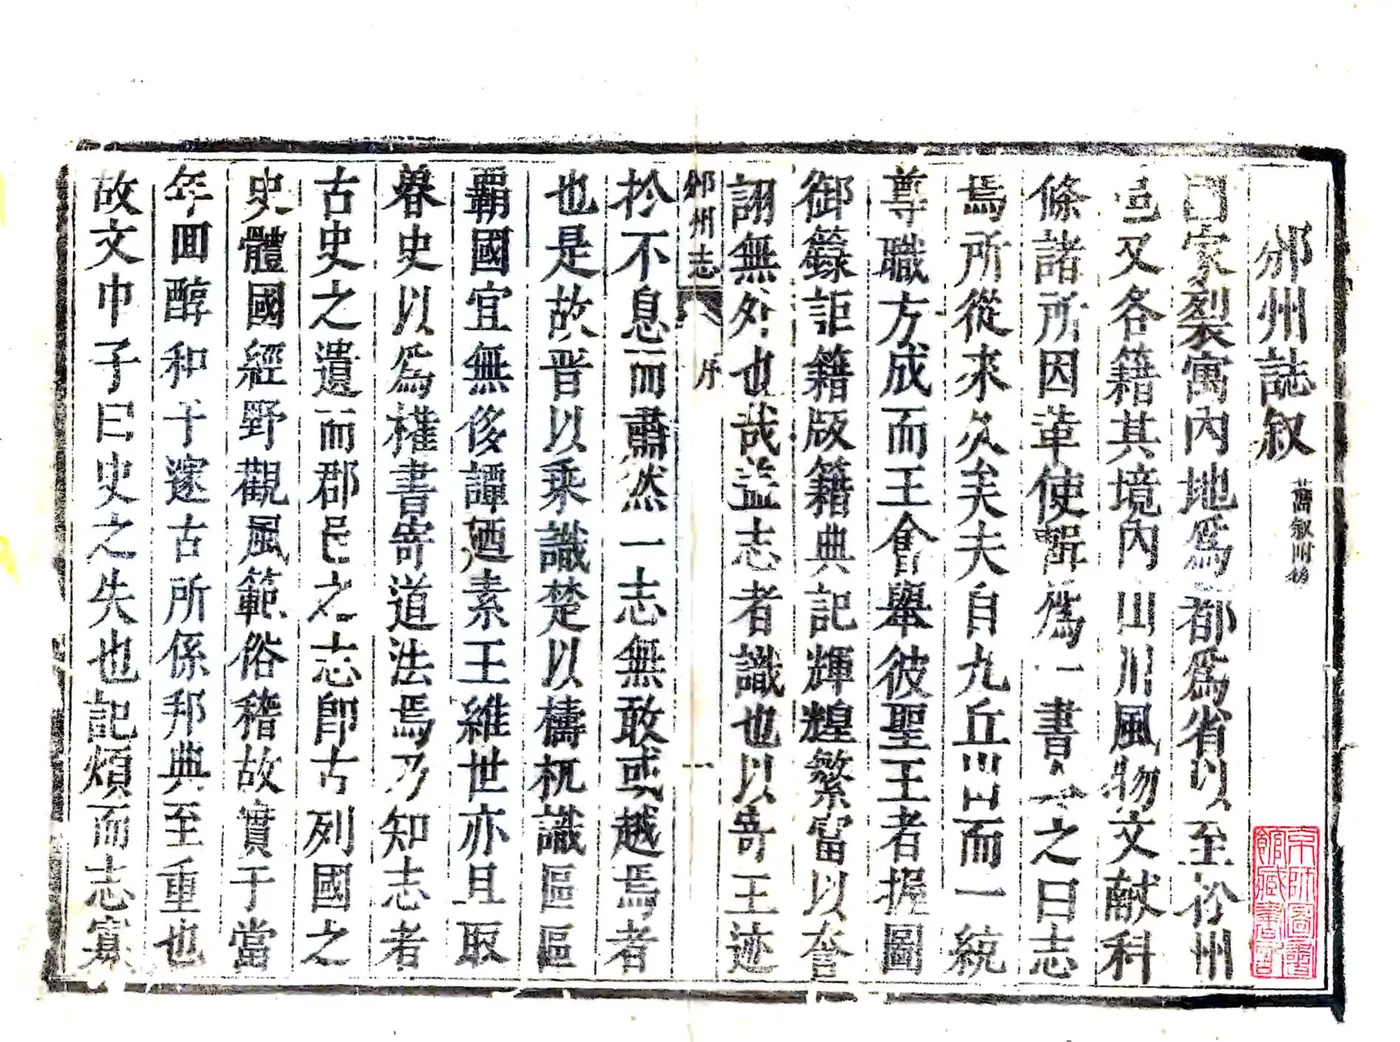 邠州誌叙 舊叙附
國家裂寓內地爲都爲省以至於州
邑又各籍其境內山川風物文獻科
條諸所因革使輯爲一書命之曰志
焉所從來久矣夫自九丘出而一統
尊職方成而王會舉彼聖王者握圖
御籙詎籍版籍典記輝煌繁富以夸
詡無外也哉益志者識也以寄王迹
邠州志 序 一
於不息而肅然一志無敢或越焉者
也是故晋以乘識楚以檮杌識區區
覇國宜無侈譚廼素王維世亦且取
春史以爲權書寄道法焉乃知志者
古史之遺而郡邑之志即古列國之
史體國經野觀風範俗稽故實于當
年回醇和于邃古所係邦典至重也
故文中子曰史之失也記煩而志寡